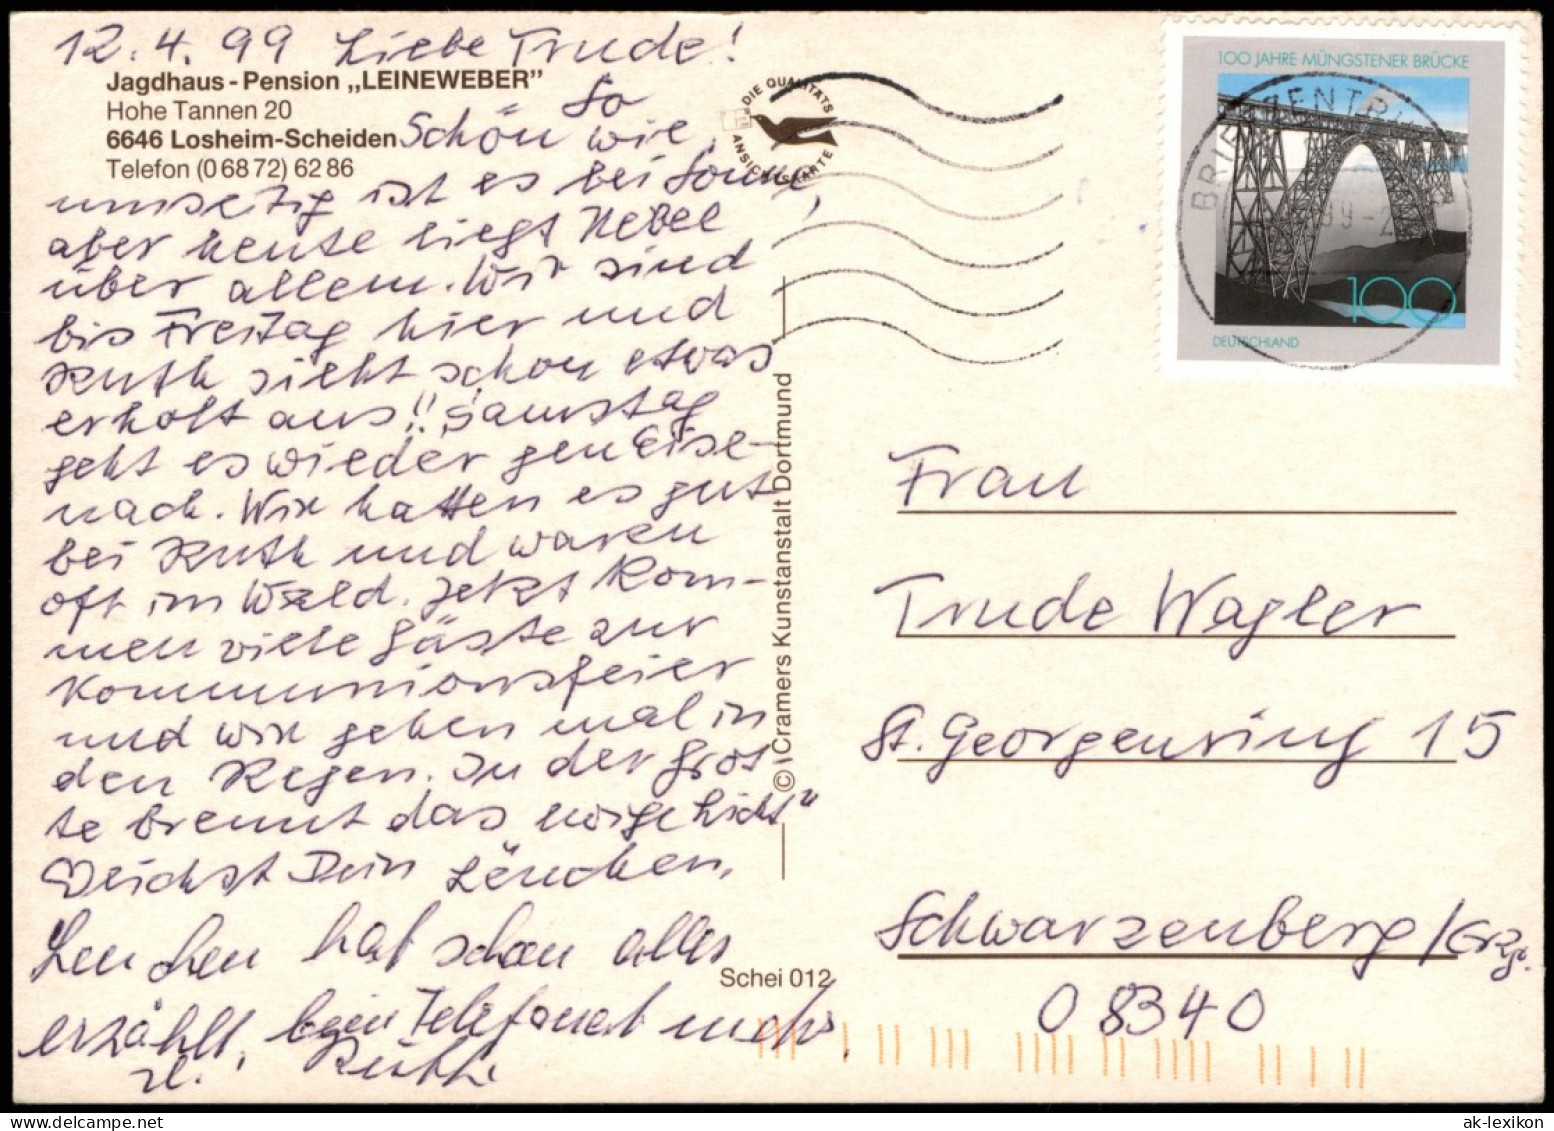 12.4.99 Liebe Trude!
Jagdhaus-Pension „LEINEWEBER”
Hohe Tannen 20
6646 Losheim-Scheiden
Telefon (0 68 72) 62 86
So
Schön wie
umseitig ist es bei Sonne,
aber heute liegt Nebel
über allem. Wir sind
bis Freitag hier und
Ruth sieht schon etwas
erholt aus!! Samstag
geht es wieder gen Eise-
nach. Wir hatten es gut
bei Ruth und waren
oft im Wald. Jetzt kom-
men viele Gäste zur
Kommunionsfeier
und wir gehen mal in
den Regen. In der Grot
te brennt das "ewige Licht"
Herzlichst Dein Lenchen.
Lenchen hat schon alles
erzählt, beim Telefonat mehr.
Ruth
DIE QUALITÄTS
ANSICHTSKARTE
© Cramers Kunstanstalt Dortmund
Schei 012
100 JAHRE MÜNGSTENER BRÜCKE
BRIEFZENTR
100
DEUTSCHLAND
Frau
Trude Wagler
St. Georgenring 15
Schwarzenberg/Erzg.
08340
ak-lexikon.com